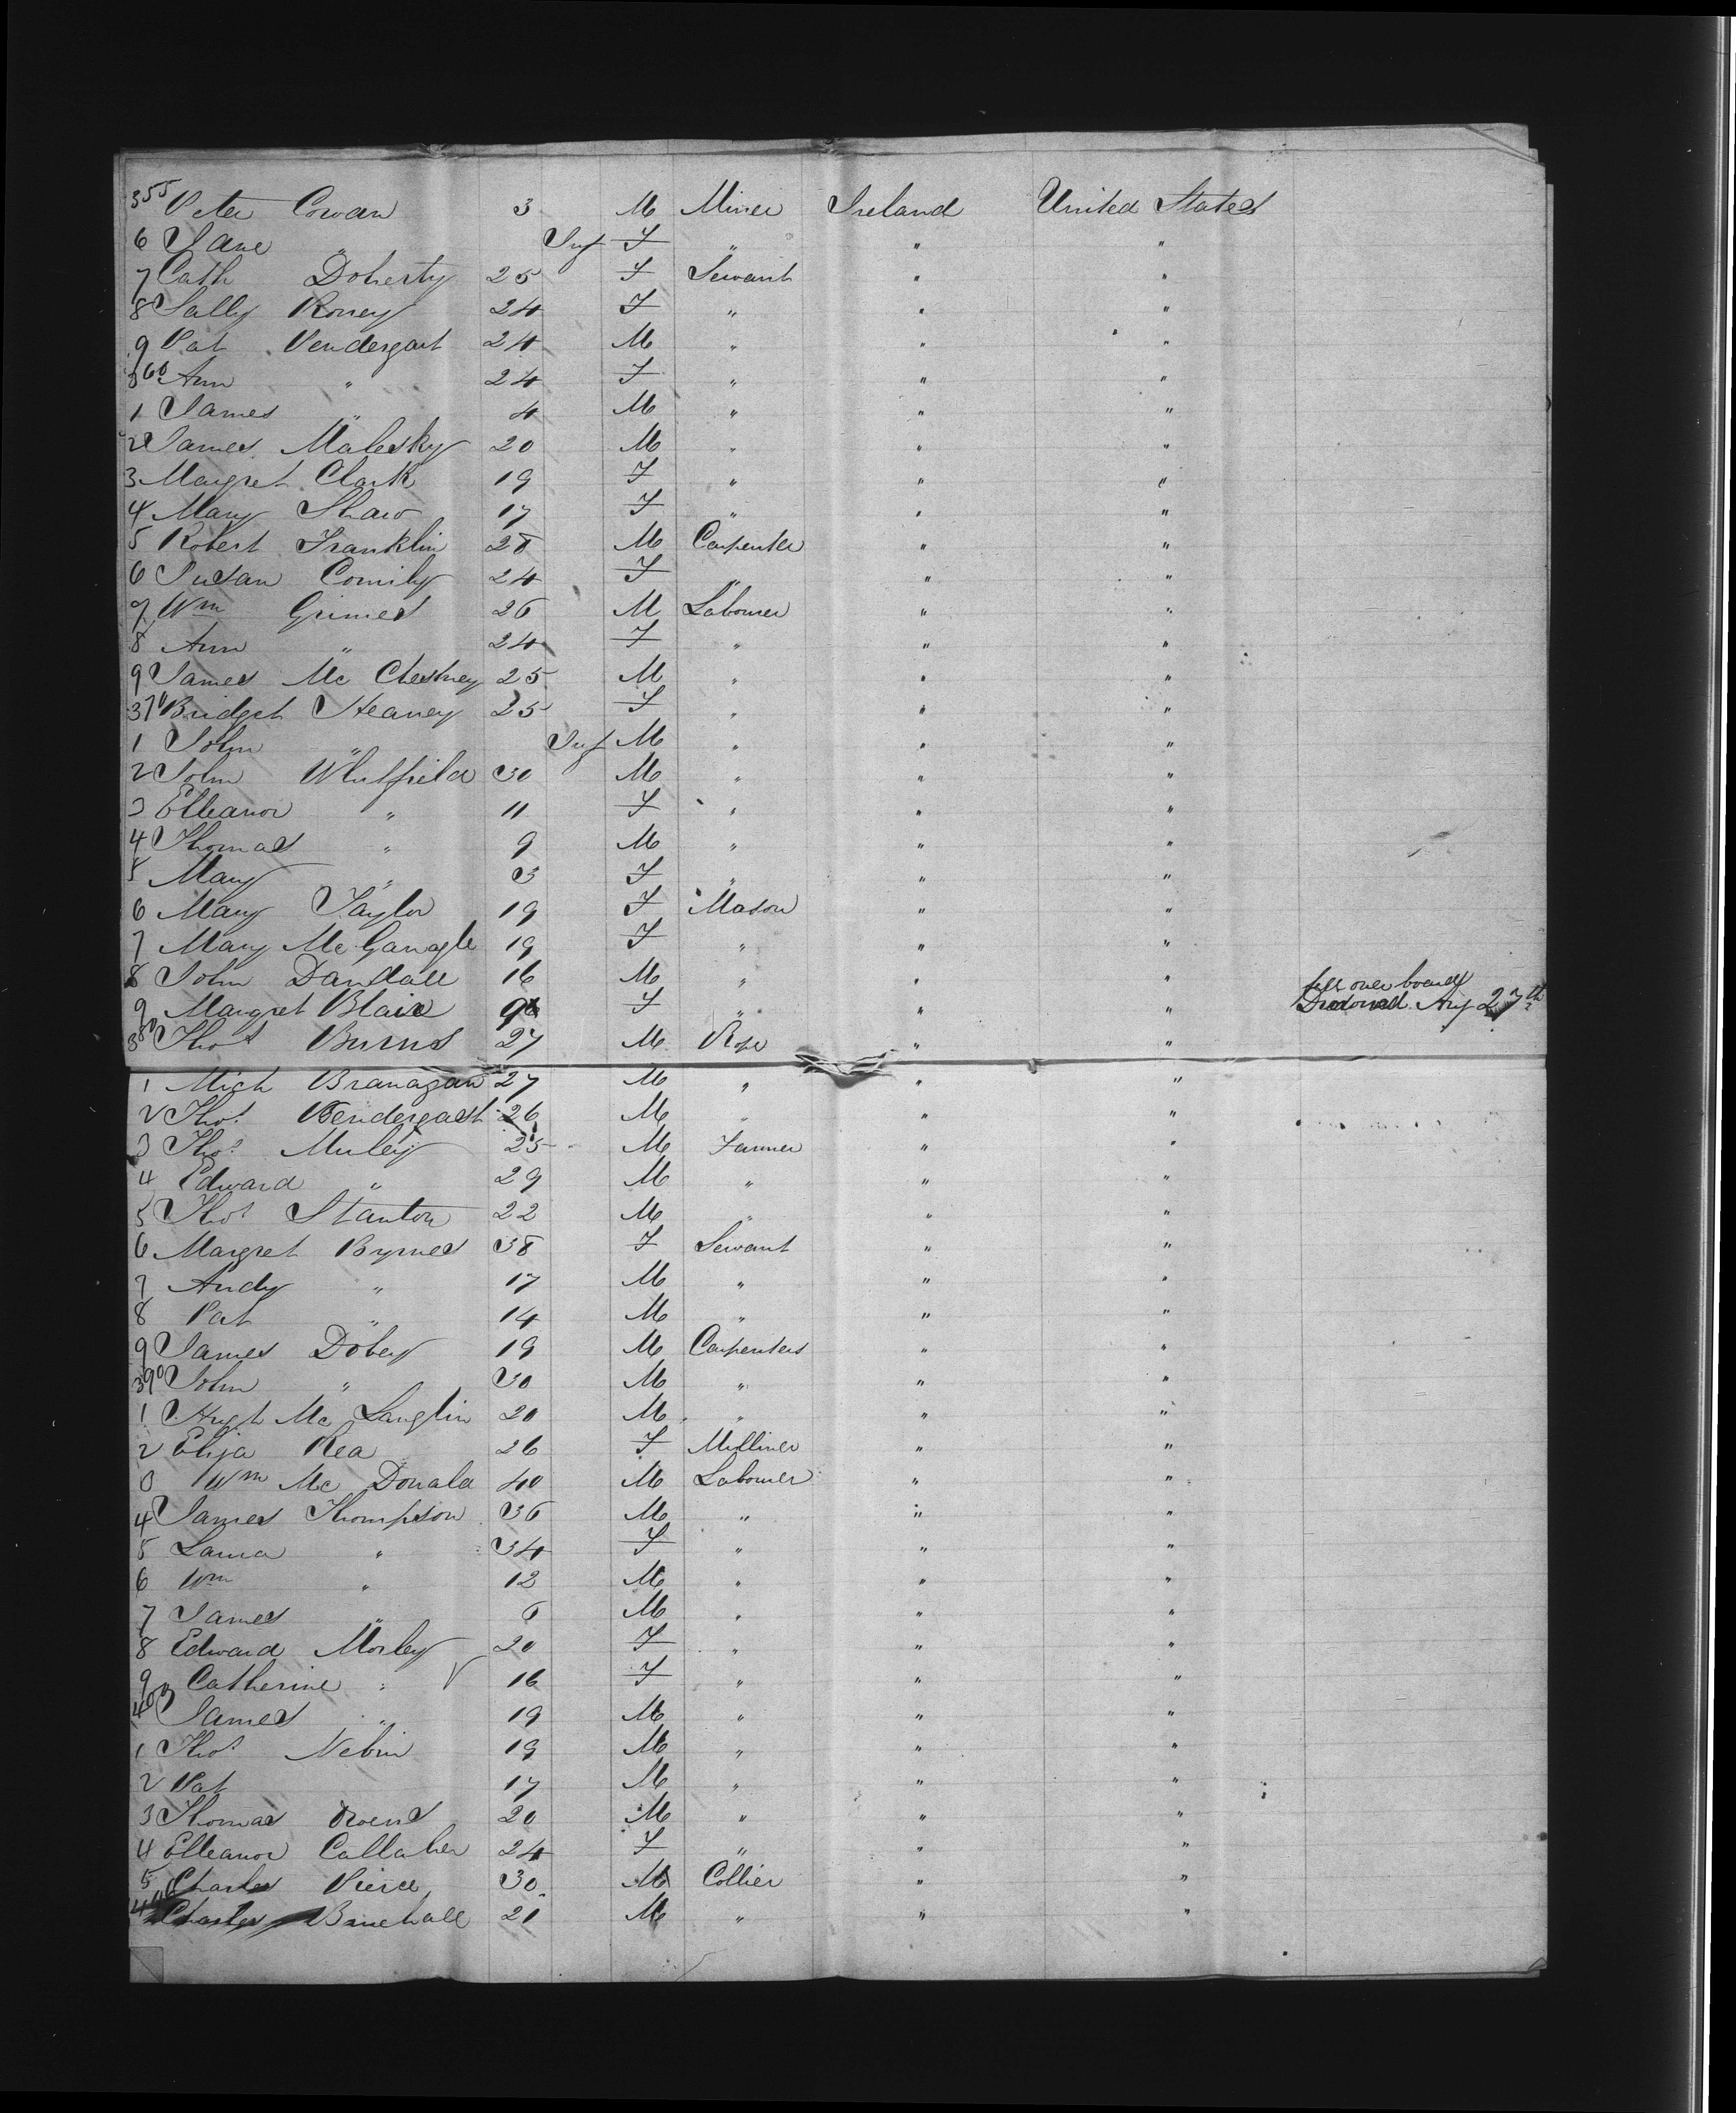 355 Peter Cowan 3 M Miner Ireland United States
6 Jane " Inf F " " "
7 Cath Doherty 25 F Servant " "
8 Sally Roney 24 F " " "
9 Pat Pendergast 24 M " " "
360 Ann " 24 F " " "
1 James " 4 M " " "
2 James Malesky 20 M " " "
3 Margret Clark 19 F " " "
4 Mary Shaw 17 F " " "
5 Robert Franklin 28 M Carpenter " "
6 Susan Comily 24 F " " "
7 Wm Grimes 26 M Labourer " "
8 Ann " 24 F " " "
9 James Mc Chesney 25 M " " "
370 Bridget Heaney 25 F " " "
1 John " Inf M " " "
2 John Whitfield 30 M " " "
3 Elleanor " 11 F " " "
4 Thomas " 9 M " " "
5 Mary " 3 F " " "
6 Mary Taylor 19 F Mason " "
7 Mary Mc Gonagle 19 F " " "
8 John Dandall 16 M " " "
9 Margret Blair 9 F " " " fell over board Drowned Aug 27th
380 Thos Burns 27 M Rope " "
1 Mich Branagan 27 M " " "
2 Thos Pendergast 26 M " " "
3 Thos Muley 25 M Farmer " "
4 Edward " 29 M " " "
5 Thos Stanton 22 M " " "
6 Margret Byrnes 38 F Servant " "
7 Andy " 17 M " " "
8 Pat " 14 M " " "
9 James Dobey 19 M Carpenters " "
390 John " 30 M " " "
1 Hugh Mc Langlin 20 M " " "
2 Eliza Rea 26 F Milliner " "
3 Wm Mc Donald 40 M Labourer " "
4 James Thompson 36 M " " "
5 Laura " 34 F " " "
6 Wm " 12 M " " "
7 James " 6 M " " "
8 Edward Morley 20 F " " "
9 Catherine " 16 F " " "
400 James " 19 M " " "
1 Thos Nebin 19 M " " "
2 Pat 17 M " " "
3 Thomas Owens 20 M " " "
4 Elleanor Callaher 24 F " " "
5 Charles Pierce 30 M Collier " "
406 Charles Banehall 21 M " " "